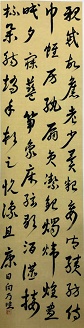 親戚故舊老少異糧妾御績紡侍
巾帷房紈扇圓潔銀燭煒煌晝
眠夕寐藍筍象床弦歌酒讌接
杯舉觴矯手頓足悅豫且康